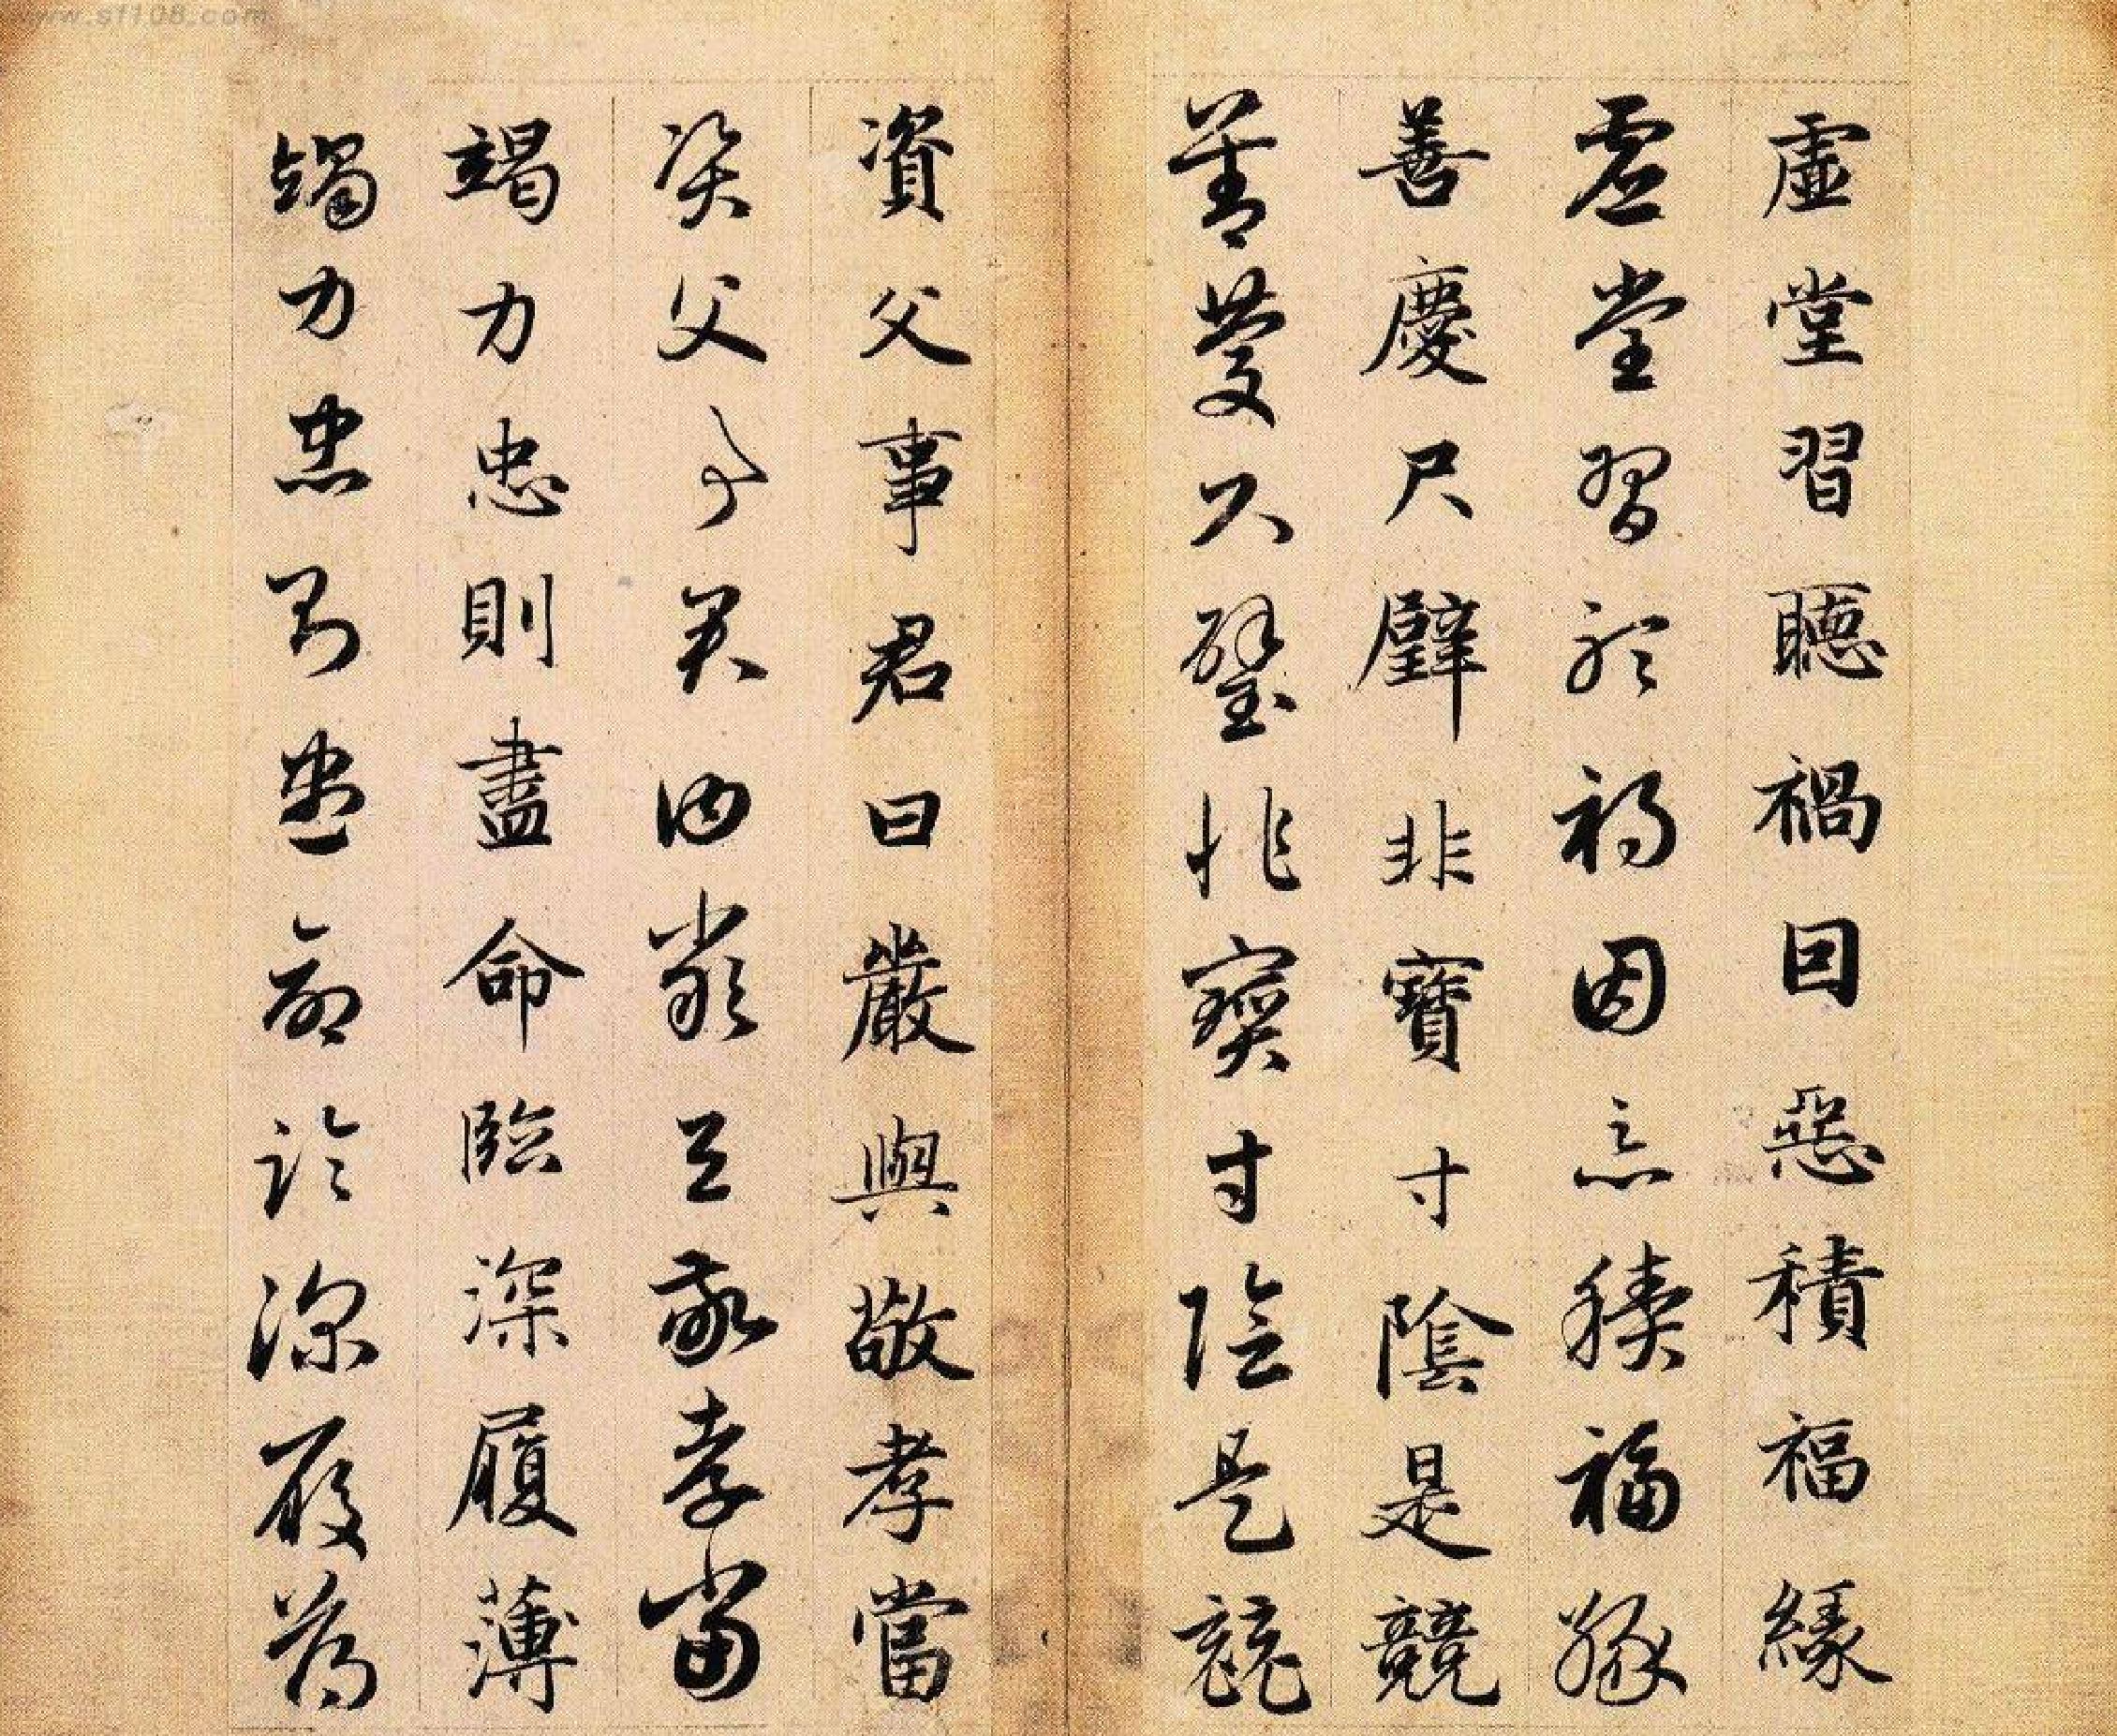 www.sf108.com
虛堂習聽禍因惡積福緣
虛堂習聽禍因惡積福緣
善慶尺璧非寶寸陰是競
善慶尺璧非寶寸陰是競
資父事君曰嚴與敬孝當
資父事君曰嚴與敬孝當
竭力忠則盡命臨深履薄
竭力忠則盡命臨深履薄